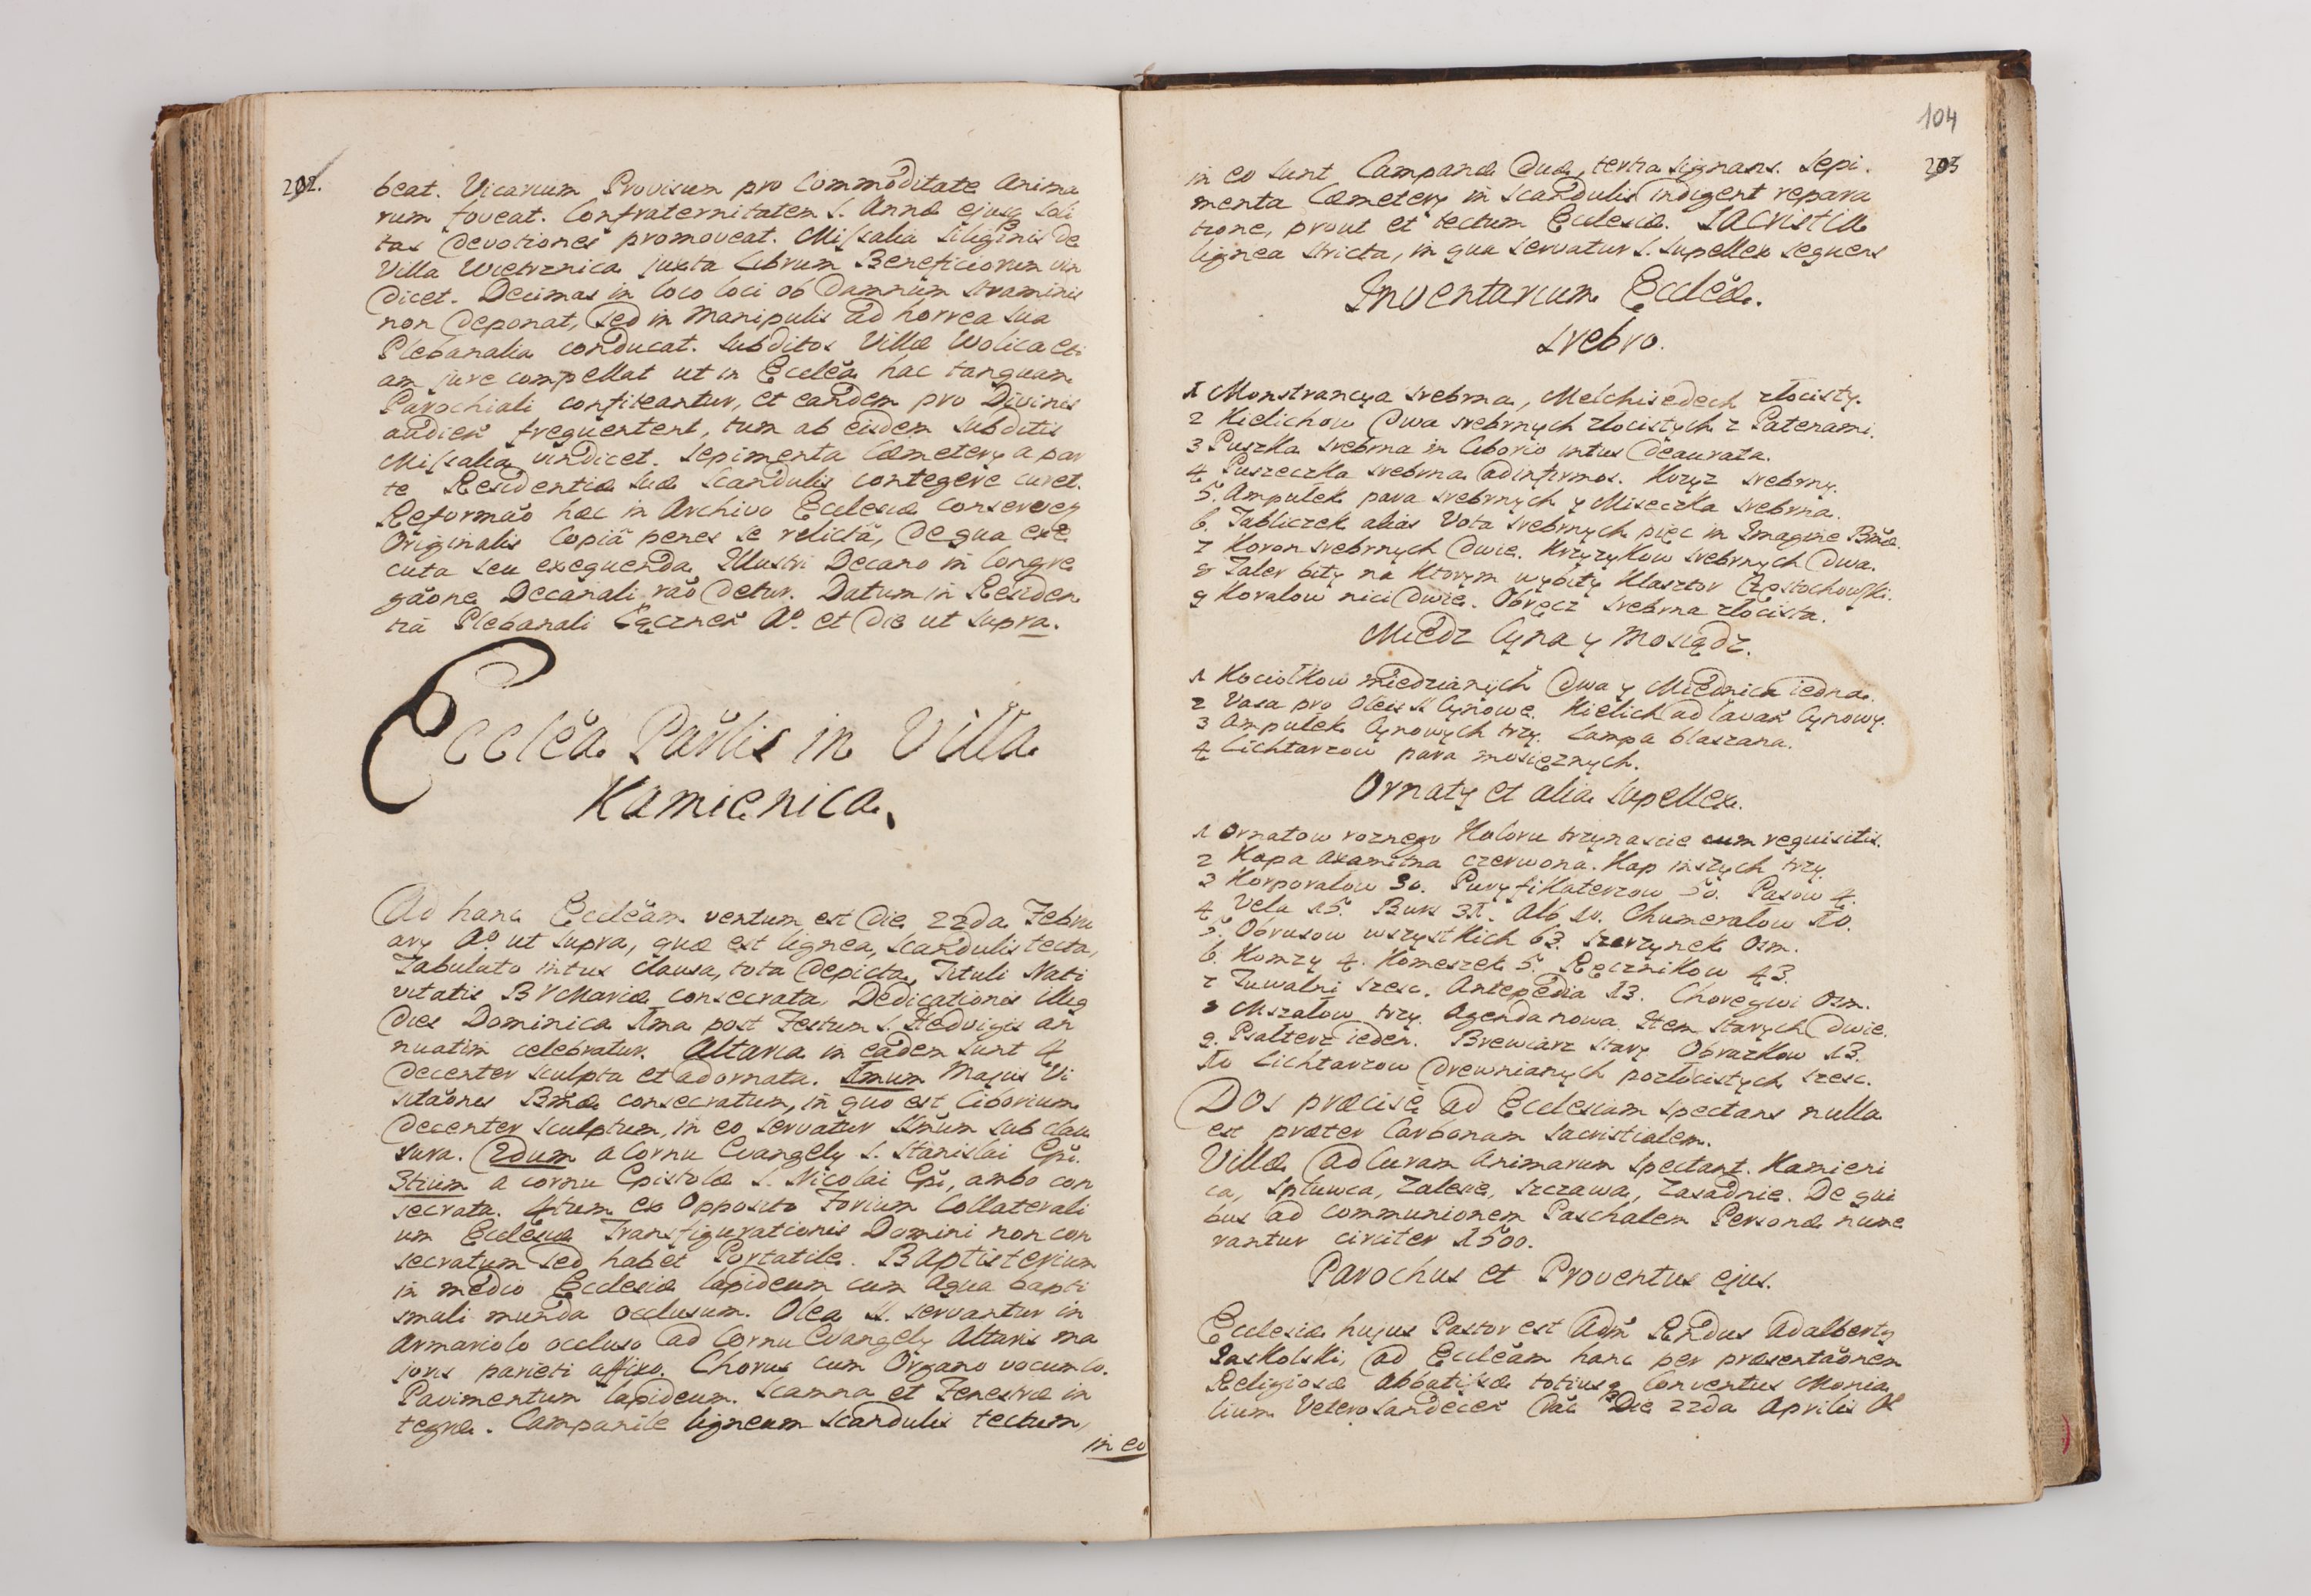 202.
beat. Vicarium Provisum pro Commoditate Anima
rum foveat. Confraternitatem S. Annæ ejusq soli
tas Devotiones promoveat. Missalia Siliginis de
Villa Wietrznica juxta Librum Beneficiorum vin
dicet. Decimas in loco loci ob Damnum straminis
non Deponat, sed in Manipulis ad horrea sua
Plebanalia conducat. Subditos Villæ Wolica eti
am jure compellat ut in Ecclëa hac tanquam
Parochiali confiteantur, et eandem pro Divinis
audien frequentent, tum ab eisdem Subditis
Missalia vindicet. Sepimenta Cæmetery a par
te Residentiæ suæ Scandulis contegere curet.
Reformão hæc in Archivo Ecclesiæ conservey
Originalis Copiã penes se relictã, De qua exe
cuta seu exequenda Illustri Decano in Congre
gãone Decanali rão Detur. Datum in Residen
tiã Plebanali Łącznen Aº et Die ut supra.
Ecclëa Parlis in Villa
Kamienica.
Ad hanc Ecclëam ventum est Die 22da Febru
ary Aº ut supra, quæ est lignea, scandulis tecta,
Tabulato intus clausa, tota Depicta, Tituli Nati
vitatis B V Mariæ consecrata, Dedicationis illiq
Dies Dominica 1ma post Festum S. Hedvigis an
nuatim celebratur. Altaria in eadem sunt 4
Decenter sculpta et adornata. 1mum Majus Vi
sitãones Bmæ consecratum, in quo est Ciborium
Decenter sculptum, in eo servatur Smum sub clau
sura. 2dum a Cornu Evangely S. Stanislai Epi.
3tium a cornu Epistolæ S. Nicolai Epi, ambo con
secrata. 4tum ex Opposito Forium Collaterali
um Ecclesiæ Transfigurationis Domini non con
secratum sed habet Portatile. Baptisterium
in medio Ecclesiæ lapideum cum Aqua bapti
smali munda occlusum. Olea SS. servantur in
Armariolo occluso ad Cornu Evangely Altaris ma
joris parieti affixo. Chorus cum Organo vocum 60.
Pavimentum lapideum. Scamna et Fenestræ in
tegræ. Campanile ligneum scandulis tectum,
in eo
104
203
in eo sunt Campanæ Duæ, tertia signans. Sepi.
menta Cæmetery in Scandulis indigent repara
tione, prout et tectum Ecclesiæ. Sacristia
lignea stricta, in qua servatur S. Supellex sequens
Inventarium Ecclëæ.
Srebro.
1 Monstrancya srebrna, Melchisedech złocisty.
2 Kielichow Dwa srebrnych złocistych z Patenami.
3 Puszka srebrna in Ciborio intus Deaurata.
4 Puszeczka srebrna ad infirmos. Krzyz srebrny.
5. Ampułek para srebrnych y Miseczka srebrna.
6. Tabliczek alias Vota srebrnych pięc in Imagine Bmæ.
7 Koron srebrnych Dwie. Krzyzykow srebrnych Dwa.
8 Taler bity na ktorym wybity Klasztor Częstochowski.
9 Koralow nici Dwie. Obręcz srebrna złocista.
Miedz Cyna y Mosiądz.
1 Kociołkow miedzianych Dwa y Miednica iedna.
2 Vasa pro Oleis SS Cynowe. Kielich ad lavan Cynowy.
3 Ampułek Cynowych trzy. Lampa blaszana.
4 Lichtarzow para mosięznych.
Ornaty et alia Supellex.
1 Ornatow roznego Koloru trzynascie cum requisitis.
2 Kapa axamitna czerwona. Kap inszych trzy.
3 Korporalow 30. Puryfikaterzow 50. Pasow 4.
4 Vela 15. Burs 31. Alb 10. Chumeralow 10.
5. Obrusow wszystkich 63. Szarzynek Osm.
6. Komzy 4. Komeszek 5. Ręcznikow 43.
7 Tuwalni szesc. Antepedia 13. Choregwi Osm.
8 Mszałow trzy. Agenda nowa. Item starych Dwie.
9. Psałterz ieden. Brewiarz stary Obrazkow 13.
10 Lichtarzow Drewnianych pozłocistych szesc.
Dos præcise ad Ecclesiam spectans nulla
est præter Carbonam Sacristialem.
Villæ ad Curam Animarum spectant. Kamieni
ca, Spluwca, Zalesie, Szczawa, Zasadnie. De qui
bus ad communionem Paschalem Personæ nume
rantur circiter 1500.
Parochus et Proventus ejus.
Ecclesiæ hujus Pastor est Adm Rndus Adalberty
Jaskolski, ad Ecclëam hanc per præsentãonem
Religiosæ Abbatissæ totiusq Conventus Monia
lium Vetero Sandecen Die 22da Aprilis Aº